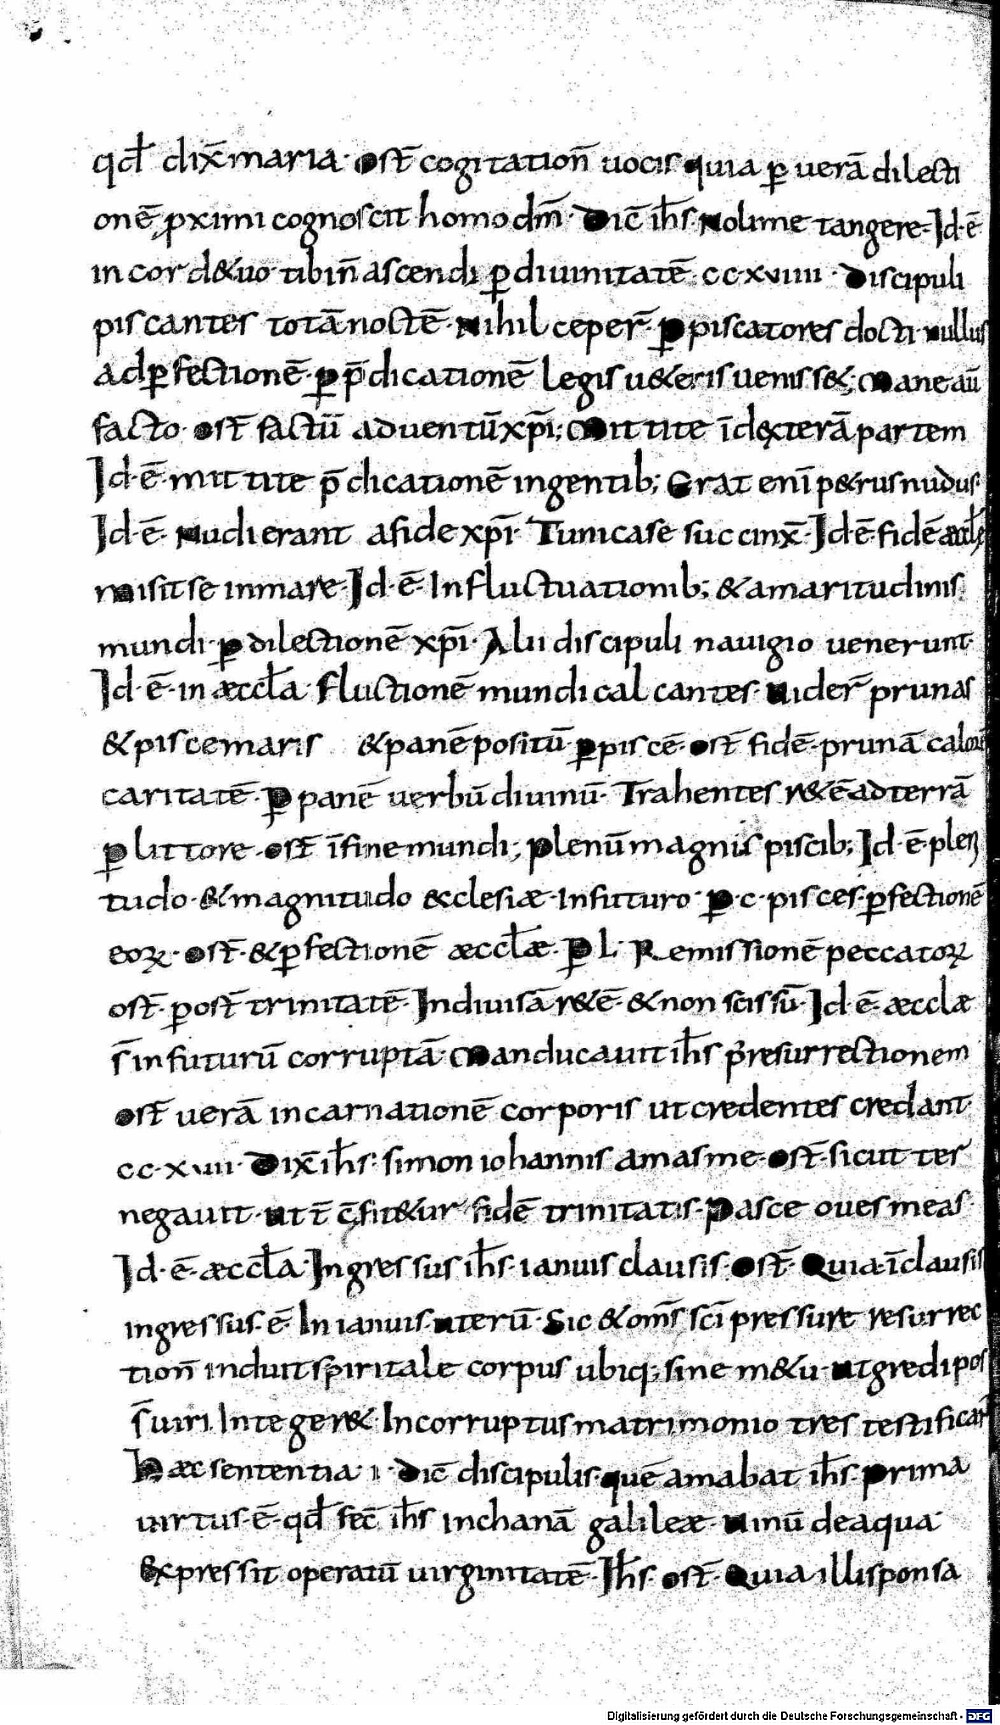 qđ dix̄ maria · ost̄ cogitation̄ vocis quia ꝑ verā dilecti
onē ꝓximi cognoscit homo dm̄ · Dic̄ ih̄s Nolime tangere · Id · ē
in cord& uo · tibi n̄ ascendi ꝑ divinitatē · cc · xviiii · Discipuli
piscantes totā noctē · Nihil ceper̄ · ꝑ piscatores docti · nullus
ad ꝑfectionē · ꝑ p̄dicationē legis u&eris veniss& ; Mane aū
facto · ost̄ factū adventū xp̄i ; Mittite ī dexterā partem
Id · ē · mittite p̄dicationē in gentib ; Erat enī p&rus nudus ·
Id · ē · Nudi erant a fide xp̄i · Tunica se succinx̄ · Id · ē · fidē æccłę
misit se in mare · Id · ē · In fluctuationib ; & amaritudinis
mundi · ꝑ dilectionē xp̄i · Alii discipuli navigio venerunt ·
Id · ē · in æccła · fluctionē mundi calcantes · Uider̄ prunas
& piscem aris & panē positū · ꝑ piscē · ost̄ fidē · prunā calorē
caritatē · ꝑ panē verbū divinū · Trahentes r&ē ad terrā
ꝑ littore · ost̄ ī fine mundi ; Plenū magnis piscib ; Id · ē · pleni
tudo · & magnitudo &cclesiæ · In futuro · ꝑ · c · pisces · ꝑfectionē
eoꝝ · ost̄ · & ꝑfectionē æccłæ · ꝑ L · Remissionē peccatoꝝ
ost̄ · ꝑ ost̄ trinitatē · Indivisā r&ē · & non scissū · Id · ē · æcclæ
s̄ in futurū corruptā · Manducavit ih̄s p̄ resurrectionem
ost̄ verā incarnationē corporis ut credentes credant ·
cc · xviii · Dix̄ ih̄s · simon iohannis amas me · ost̄ · sicut ter
negavit · ut t̄ c̄fit&ur fidē trinitatis · Pasce oves meas ·
Id · ē · æccła · Ingressus ih̄s · ianuis clausis · ost̄ · Quia ī clausis
ingressus · ē · In ianuis · uterū · Sic & om̄s sc̄i pressure resurrec
tion̄ induit spiritale corpus ubiq ; sine m&u · Ut gredi pos
s̄ uiri · Integer& · Incorruptus matrimonio tres testificat̄
Hæc sententia · ii · Dic̄ discipulis · quē amabat ih̄s · prima
virtus · ē · qđ fec̄ ih̄s in chanā galileæ · vinū de aqua
expressit operatū virginitatē · Ih̄s · ost̄ · Quia illi sponsa
Digitalisierung gefördert durch die Deutsche Forschungsgemeinschaft - DFG